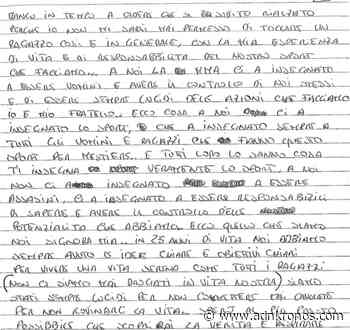 TANTO IN TEMPO A
PERCHE IO NON MI SAREI MAI PERMESSO DI TOCCARE UN
RAGAZZO COSI E IN GENERALE, CON LA MIA ESPERIENZA
DI VITA E DI RESPONSABILITA DEL NOSTRO SPORT
CHE FACCIAMO... A NOI LA MMA CI A INSEGNATO
A ESSERE UOMINI E AVERE IL CONTROLLO DI NOI STESSI
E DI ESSERE SEMPRE LUCIDI DELLE AZIONI CHE FACCIAMO
IO E MIO FRATELLO.. ECCO COSA A NOI CI A
INSEGNATO LO SPORT, E CHE A INSEGNATO SEMPRE A
TUTI GLI UOMINI E RAGAZZI CHE FANNO QUESTO
SPORT PER MESTIERE. E TUTI LORO LO SANNO COSA
TI INSEGNA VERAMENTE LO SPORT. A NOI
NON CI A INSEGNATO A ESSERE
ASSASINI, CI A INSEGNATO A ESSERE RESPONSABILI
DI SAPERE E AVERE IL CONTROLLO DELLE
POTENZIALITA CHE ABBIAMO. ECCO QUELLO CHE SIAMO
NOI SIGNORA MIA... IN 25 ANNI DI VITA NOI ABBIAMO
SEMPRE AVUTO LE IDEE CHIARE E OBIETIVI CHIARI
PER VIVERE UNA VITA SERENA COME TUTI I RAGAZZI
NON CI SIAMO MAI DROGATI IN VITA NOSTRA SIAMO
STATI SEMPRE LUCIDI PER NON COMMETTERE MAI CAVOLATE
PER NON ROVINARCI LA VITA. SPERO AL PIU PRESTO
POSSIBILE CHE SCOPRAI LA VERITA